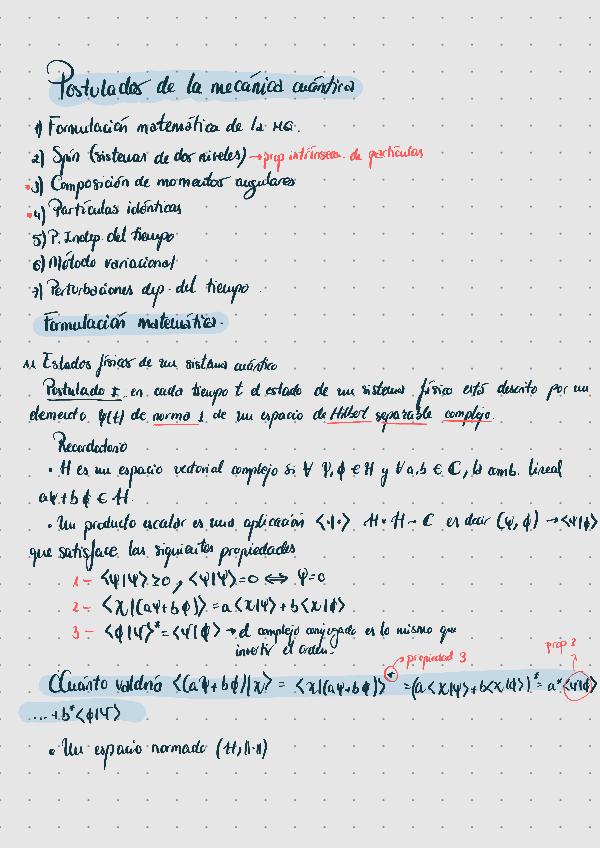 Postulados de la mecánica cuántica
1) Formulación matemática de la MC.
2) Spin (sistemas de dos niveles) → prop intrínseca de partículas
3) Composición de momentos angulares
4) Partículas idénticas
5) P. Indep. del tiempo
6) Método variacional
7) Perturbaciones dep. del tiempo.
Formulación matemática.
1.1 Estados físicos de un sistema cuántico
Postulado I. en cada tiempo t el estado de un sistema físico está descrito por un
elemento ψ(t) de norma 1 de un espacio de Hilbert separable complejo.
Recordatorio
• H es un espacio vectorial complejo si ∀ ψ, ϕ ∈ H y ∀ a,b ∈ C, la comb. lineal
aψ+bϕ ∈ H.
• Un producto escalar es una aplicación <·|·> H·H→C es decir (ψ, ϕ) → <ψ|ϕ>
que satisface las siguientes propiedades
1- <ψ|ψ> ≥0, <ψ|ψ>=0 ⟺ ψ=0
2- <χ|(aψ+bϕ)> = a<χ|ψ> + b<χ|ϕ>
3- <ϕ|ψ>* = <ψ|ϕ> → el complejo conjugado es lo mismo que
invertir el orden.
→ propiedad 3
prop 2
¿Cuánto valdría <(aψ+bϕ)|χ> = <χ|(aψ+bϕ)>* = (a<χ|ψ>+b<χ|ϕ>)* = a*<ψ|ϕ>
....+b*<ϕ|ψ>
• Un espacio normado (H,||·||)